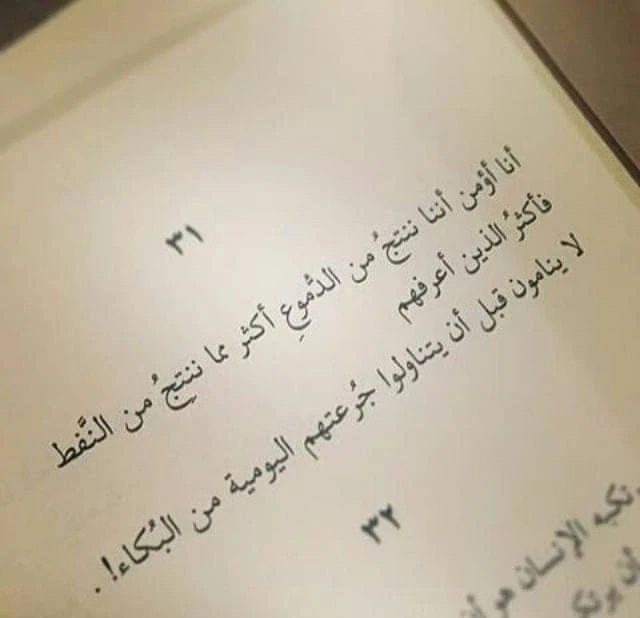 ٣١
أنا أؤمن أننا ننتجُ من الدُّموعِ أكثر مما ننتجُ من النَّفط
فأكثرُ الذين أعرفهم
لا ينامون قبل أن يتناولوا جُرعتهم اليومية من البُكاء! .
٣٢
الإنسان هو أن
أن يرتكب